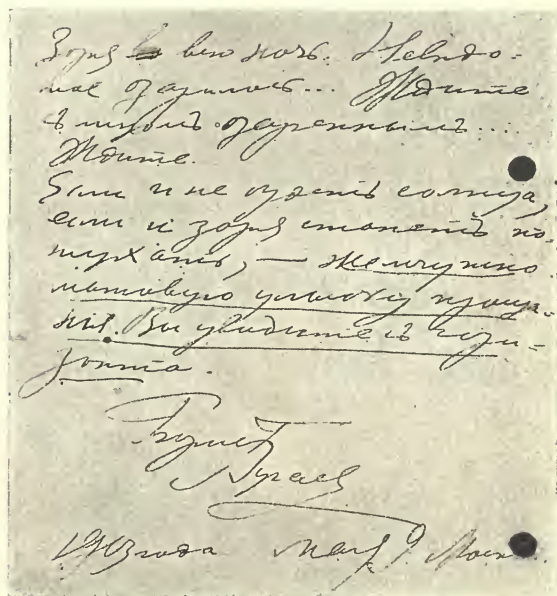 Заря всю ночь. Невѣдо-
мое озарилось... Ждите
съ лицомъ озареннымъ...
Ждите.
Если и не будетъ солнца,
если и заря станетъ по-
тухать, — жемчужно
матовую улыбку проща-
нія Вы увидите съ гори-
зонта.
Борисъ
Бугаев
1903 года Мар. 9 Моск